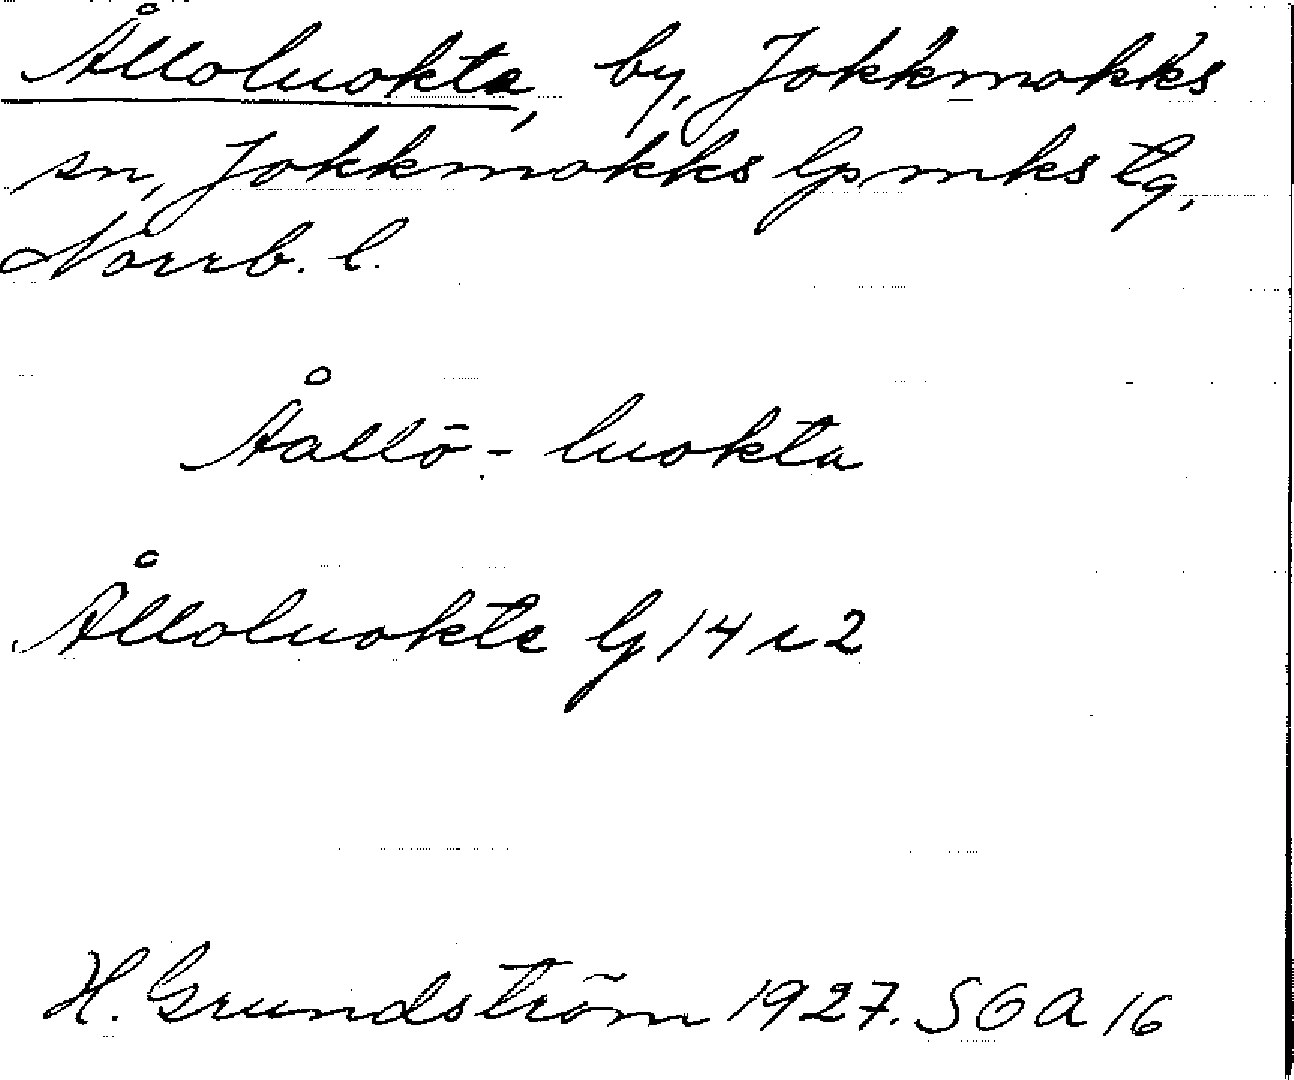 Ålloluokta, by, Jokkmokks
sn, Jokkmokks lpmks tg,
Norrb. l.
Åallō-luokta
Ålloluokta G 14 r 2
H. Grundström 1927. SOA 16